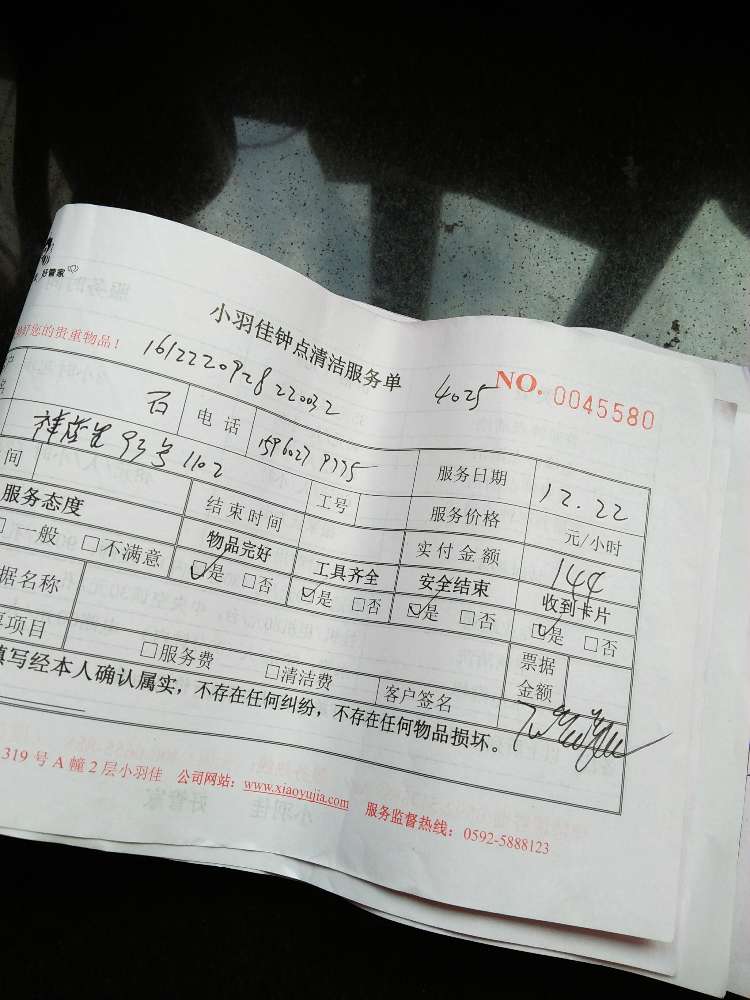 好管家
您的贵重物品！
小羽佳钟点清洁服务单
NO. 0045580
1612220928220032
4025
石 电话 服务日期 12.22
93号1102
间 结束时间 工号 服务价格 元/小时
服务态度 物品完好 工具齐全 实付金额 144
安全结束 收到卡片
□一般 □不满意 ☑是 □否 ☑是 □否 ☑是 □否 ☑是 □否
据名称
项目 □服务费 □清洁费 客户签名 票据金额
填写经本人确认属实，不存在任何纠纷，不存在任何物品损坏。
319号A幢2层小羽佳 公司网站：www.xiaoyujia.com 服务监督热线：0592-5888123